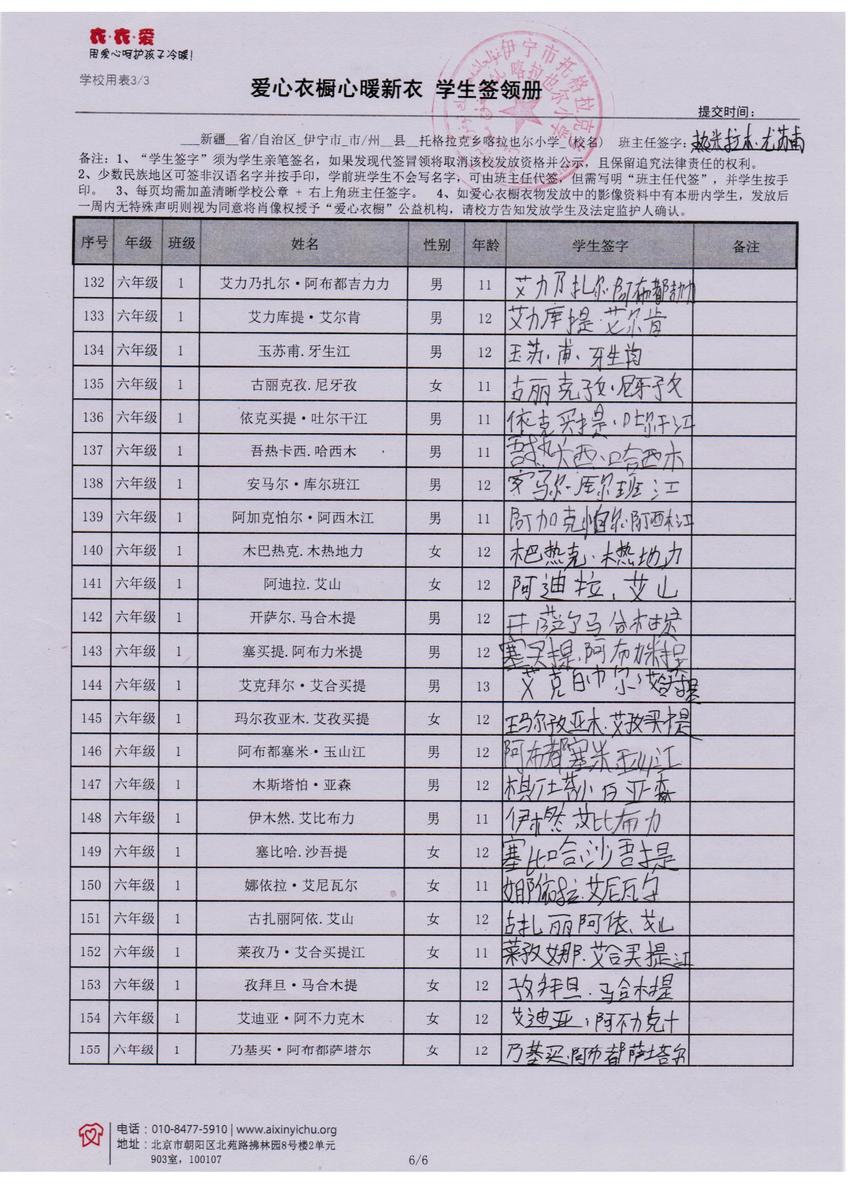 衣·衣·爱
用爱心呵护孩子冷暖!
学校用表3/3
爱心衣橱心暖新衣 学生签领册
伊宁市托格拉克
提交时间:
___新疆__省/自治区_伊宁市_市/州__县__托格拉克乡喀拉也尔小学_(校名) 班主任签字: 热米拉木·尤苏甫
备注:1、“学生签字”须为学生亲笔签名,如果发现代签冒领将取消该校发放资格并公示,且保留追究法律责任的权利。
2、少数民族地区可签非汉语名字并按手印,学前班学生不会写名字,可由班主任代签,但需写明“班主任代签”,并学生按手
印。 3、每页均需加盖清晰学校公章 + 右上角班主任签字。 4、如爱心衣橱衣物发放中的影像资料中有本册内学生,发放后
一周内无特殊声明则视为同意将肖像权授予“爱心衣橱”公益机构,请校方告知发放学生及法定监护人确认。
序号 年级 班级 姓名 性别 年龄 学生签字 备注
132 六年级 1 艾力乃扎尔·阿布都吉力力 男 11 艾力乃扎尔·阿布都
133 六年级 1 艾力库提·艾尔肯 男 12 艾力库提·艾尔肯
134 六年级 1 玉苏甫.牙生江 男 12 玉苏·甫·牙生
135 六年级 1 古丽克孜.尼牙孜 女 11 古丽克孜·尼牙孜
136 六年级 1 依克买提·吐尔干江 男 11 依克买提·吐尔干江
137 六年级 1 吾热卡西.哈西木 男 11 吾热卡西·哈西木
138 六年级 1 安马尔·库尔班江 男 12 安马尔·库尔班江
139 六年级 1 阿加克怕尔·阿西木江 男 11 阿加克怕尔·阿西木江
140 六年级 1 木巴热克.木热地力 女 12 木巴热克·木热地力
141 六年级 1 阿迪拉.艾山 女 12 阿迪拉、艾山
142 六年级 1 开萨尔.马合木提 男 12 开萨尔马合木提
143 六年级 1 塞买提.阿布力米提 男 12 塞买提.阿布力米提
144 六年级 1 艾克拜尔·艾合买提 男 13 艾克白巾尔·艾合买提
145 六年级 1 玛尔孜亚木.艾孜买提 女 12 玛尔孜亚木.艾孜买提
146 六年级 1 阿布都塞米·玉山江 男 12 阿布都塞米玉山江
147 六年级 1 木斯塔怕·亚森 男 12 亚森
148 六年级 1 伊木然.艾比布力 男 11 伊木然 艾比布力
149 六年级 1 塞比哈.沙吾提 女 12 塞比哈·沙吾提
150 六年级 1 娜依拉·艾尼瓦尔 女 11 娜依拉.艾尼瓦尔
151 六年级 1 古扎丽阿依.艾山 女 12 古扎丽阿依、艾山
152 六年级 1 莱孜乃·艾合买提江 女 11 莱孜娜.艾合买提江
153 六年级 1 孜拜旦·马合木提 女 12 孜拜旦.马合木提
154 六年级 1 艾迪亚·阿不力克木 女 12 艾迪亚,阿不力克木
155 六年级 1 乃基买·阿布都萨塔尔 女 12 乃基买.阿布都萨塔尔
电话:010-8477-5910 | www.aixinyichu.org
地址:北京市朝阳区北苑路拂林园8号楼2单元
903室,100107
6/6